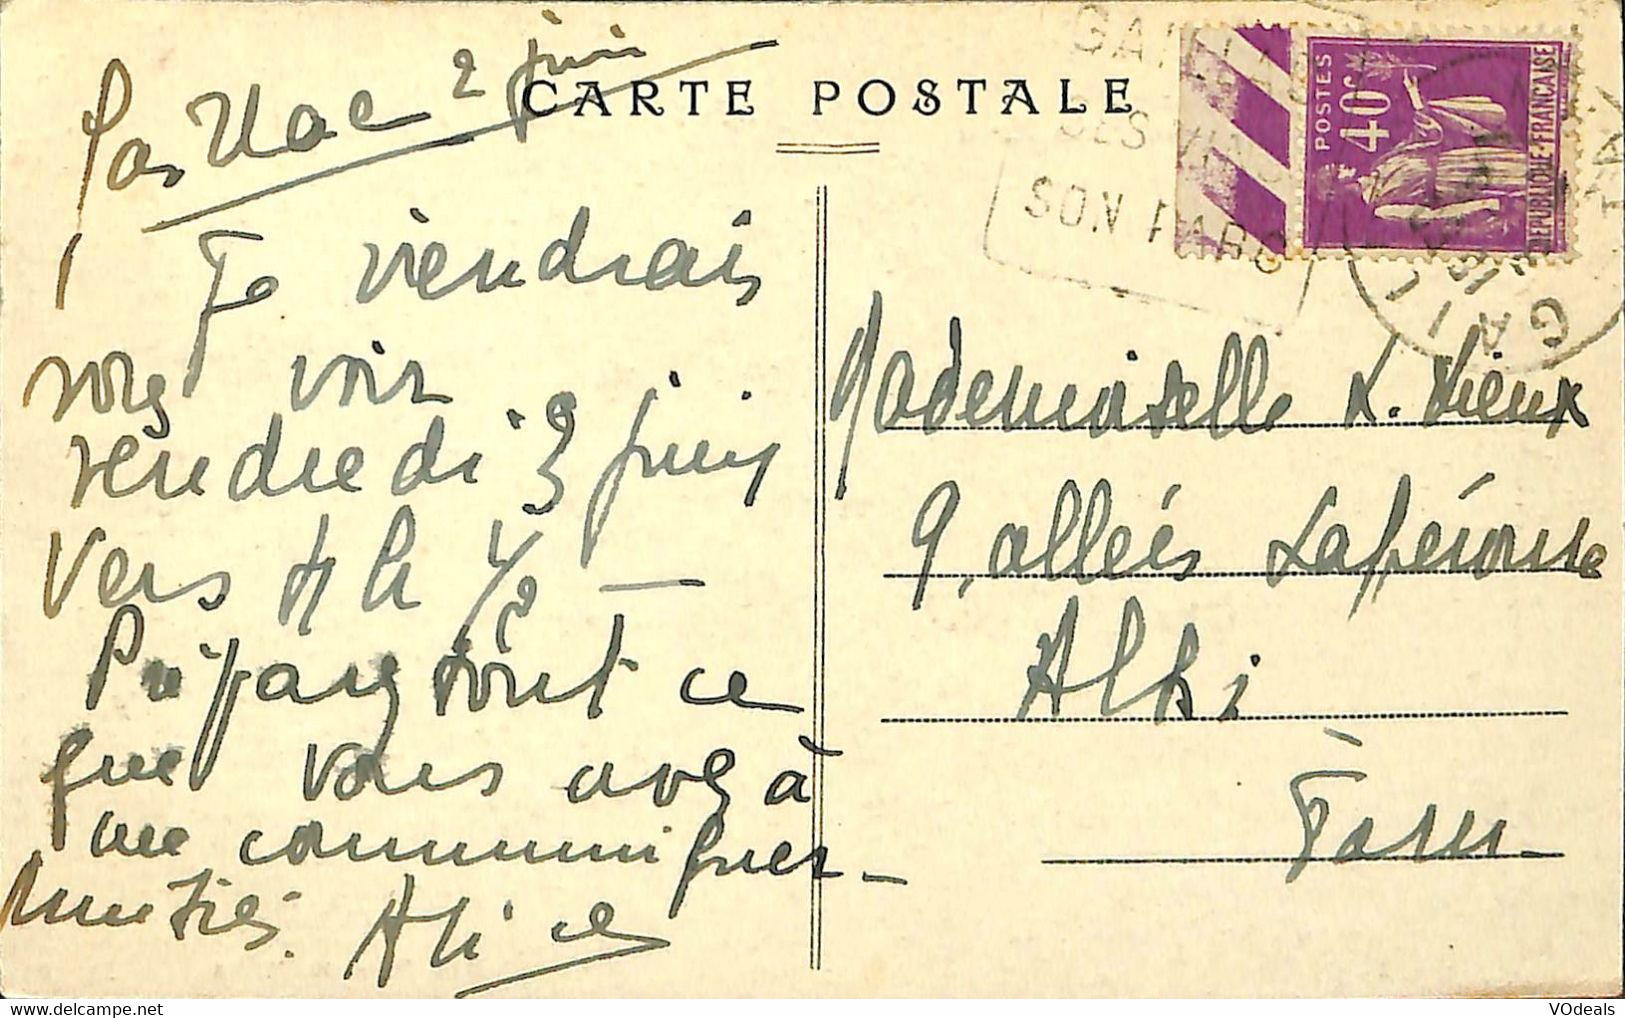 2 juin
CARTE POSTALE
Je viendrais
vous voir
vendredi 3 juin
vers 4h 1/2 —
Préparez tout ce
que vous avez à
me communiquer —
Amitiés. Alice
GAILLAC
SES VINS
SON PARC
POSTES
40c
REPUBLIQUE-FRANÇAISE
GAILLAC
TARN
Mademoiselle L. Vieux
9, allées Lapérouse
Albi
Tarn
VOdeals